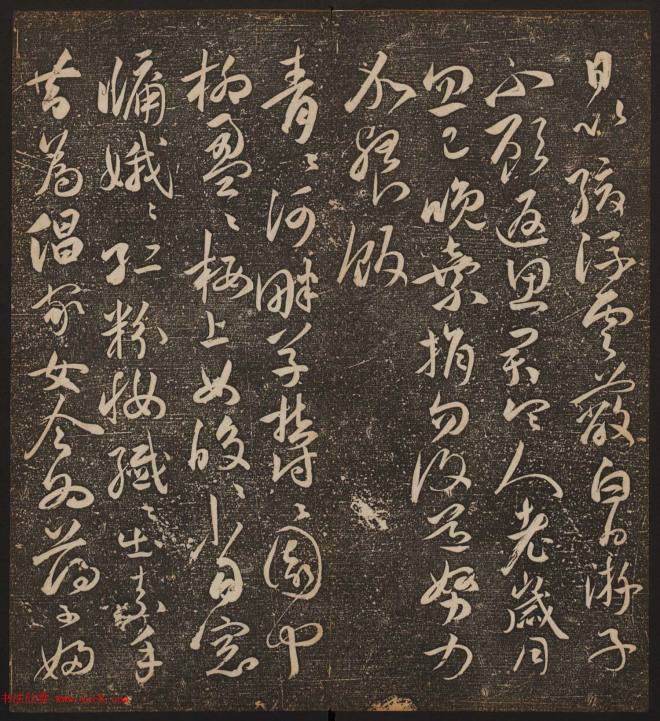 日以緩浮雲蔽白日遊子
不顧返思君令人老歲月
忽已晚棄捐勿復道努力
加餐飯
青〻河畔草鬱〻園中
柳盈〻樓上女皎〻當窓
牖娥〻紅粉妝纖〻出素手
昔為倡家女今為蕩子婦
书法欣赏